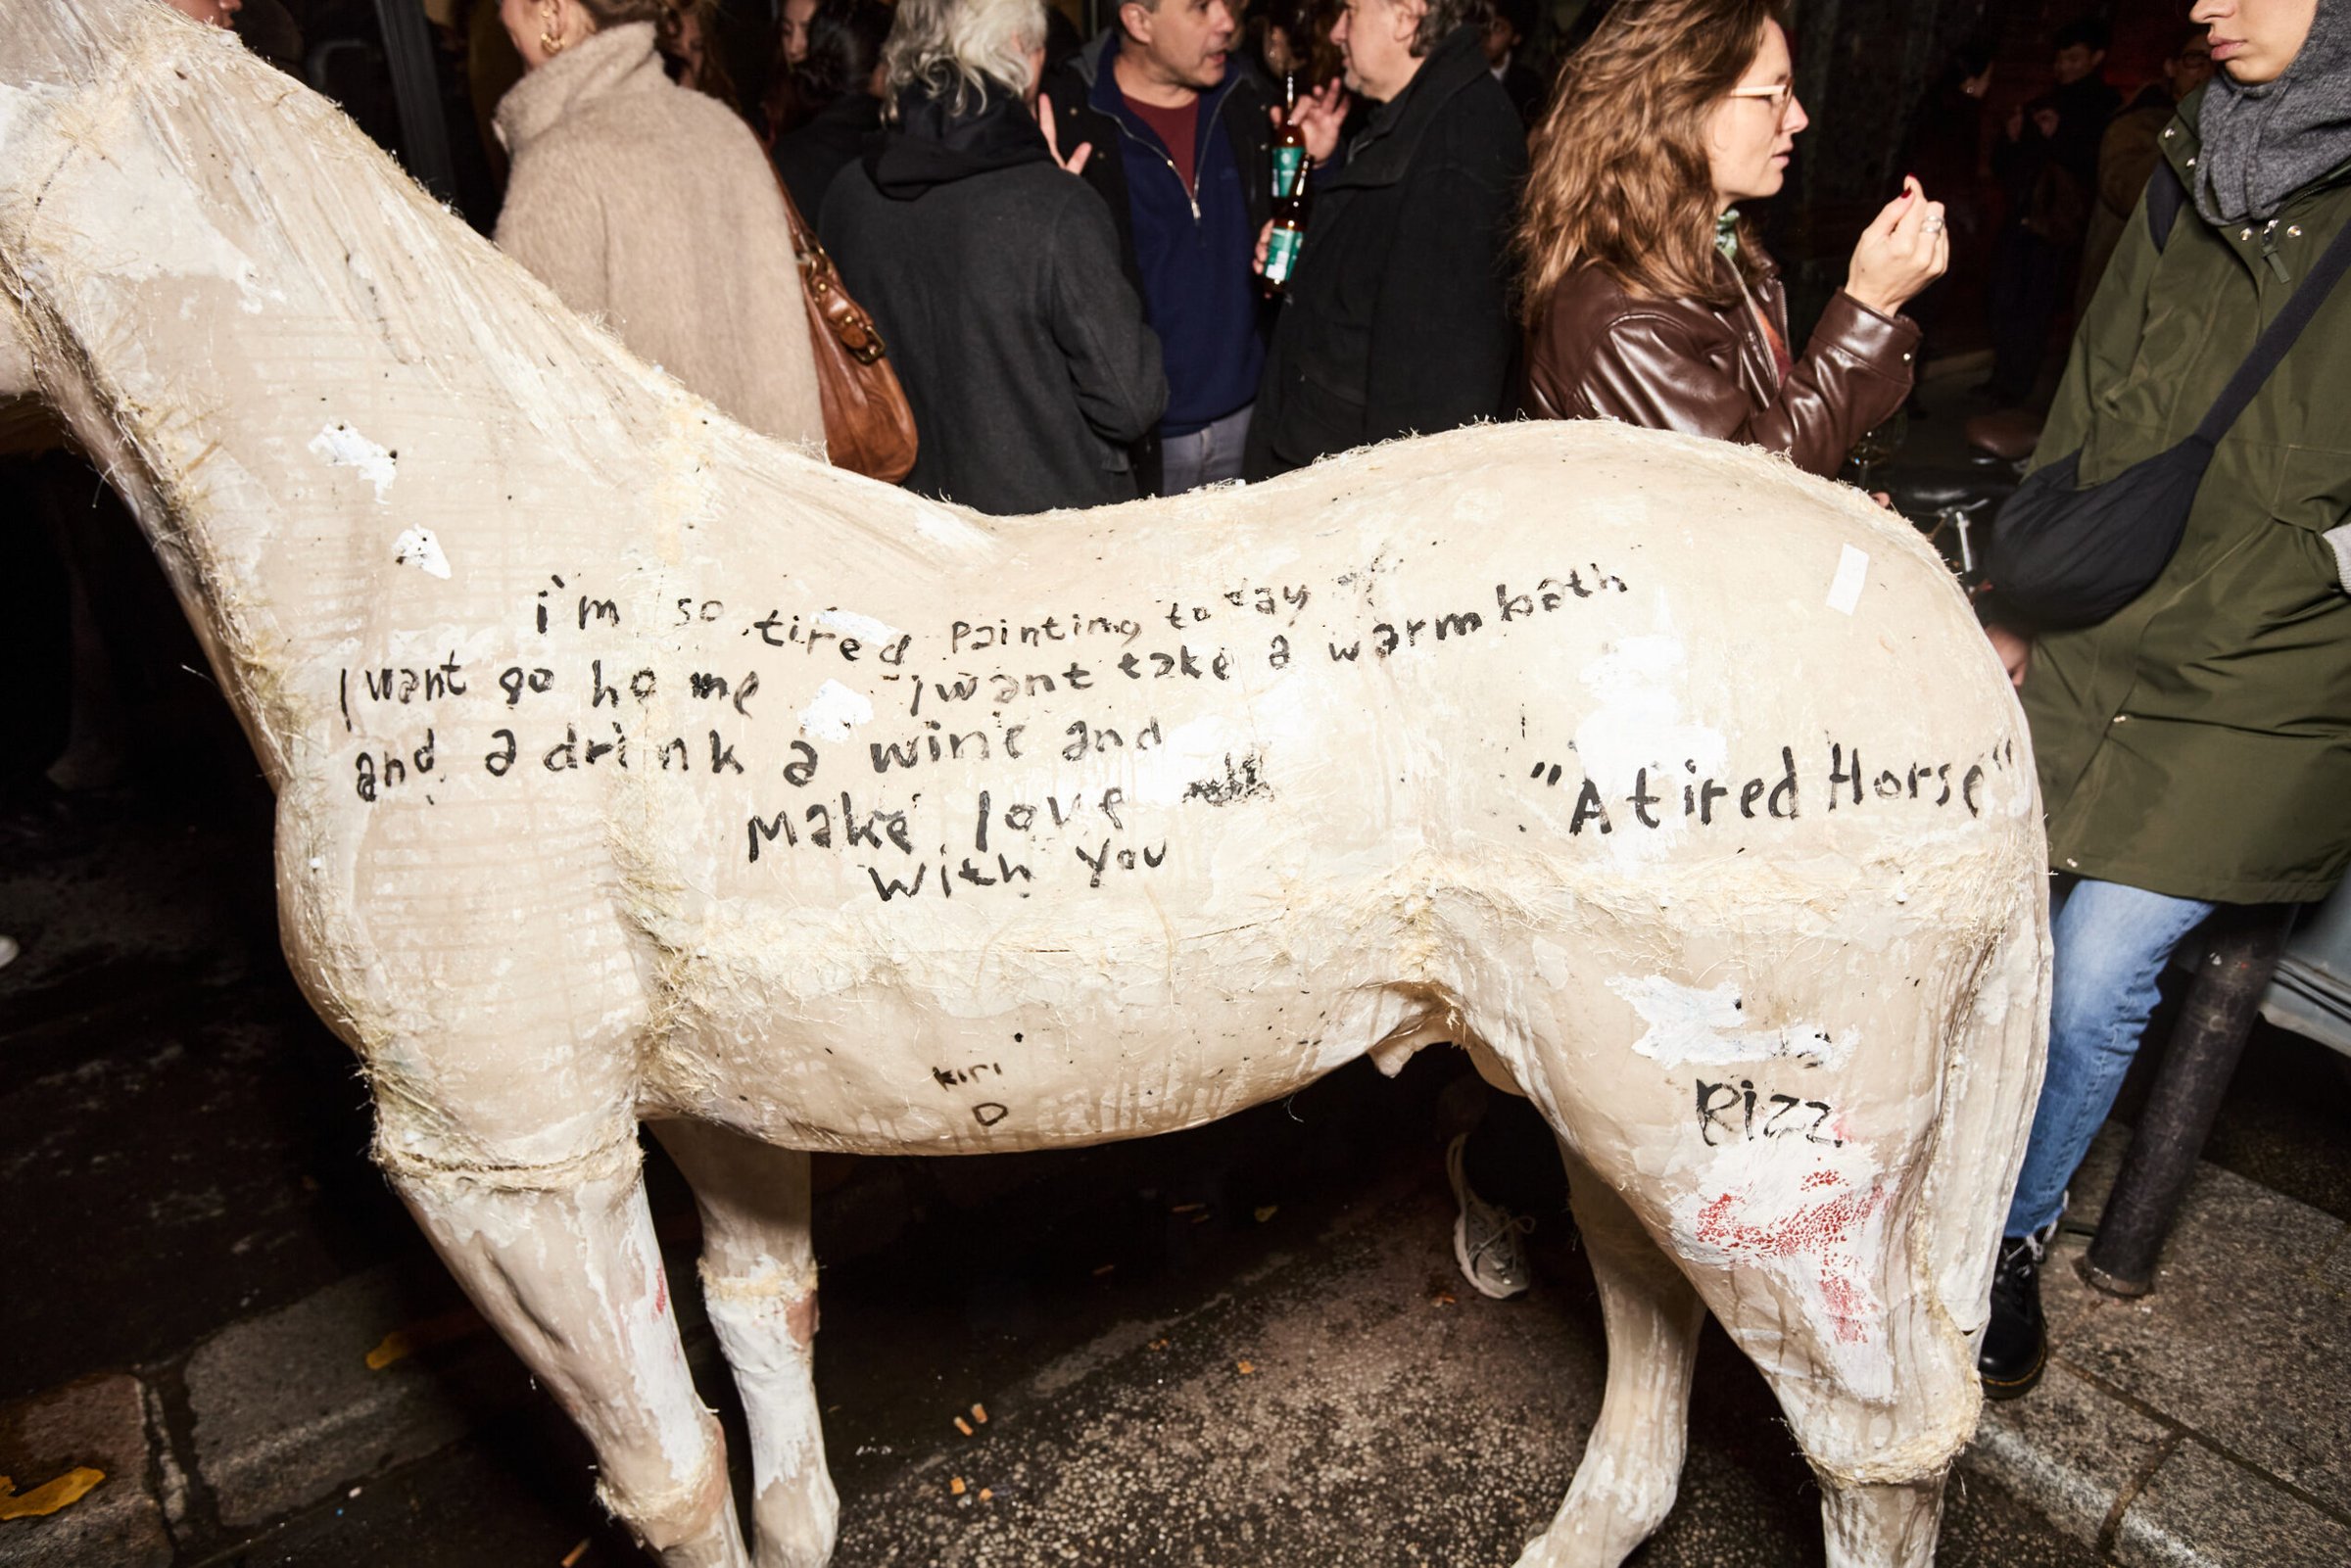 i'm so tired Painting today
I want go home I want take a warm bath
and a drink a wine and
Make love
With You
"A tired Horse"
kiri
D
Rizz